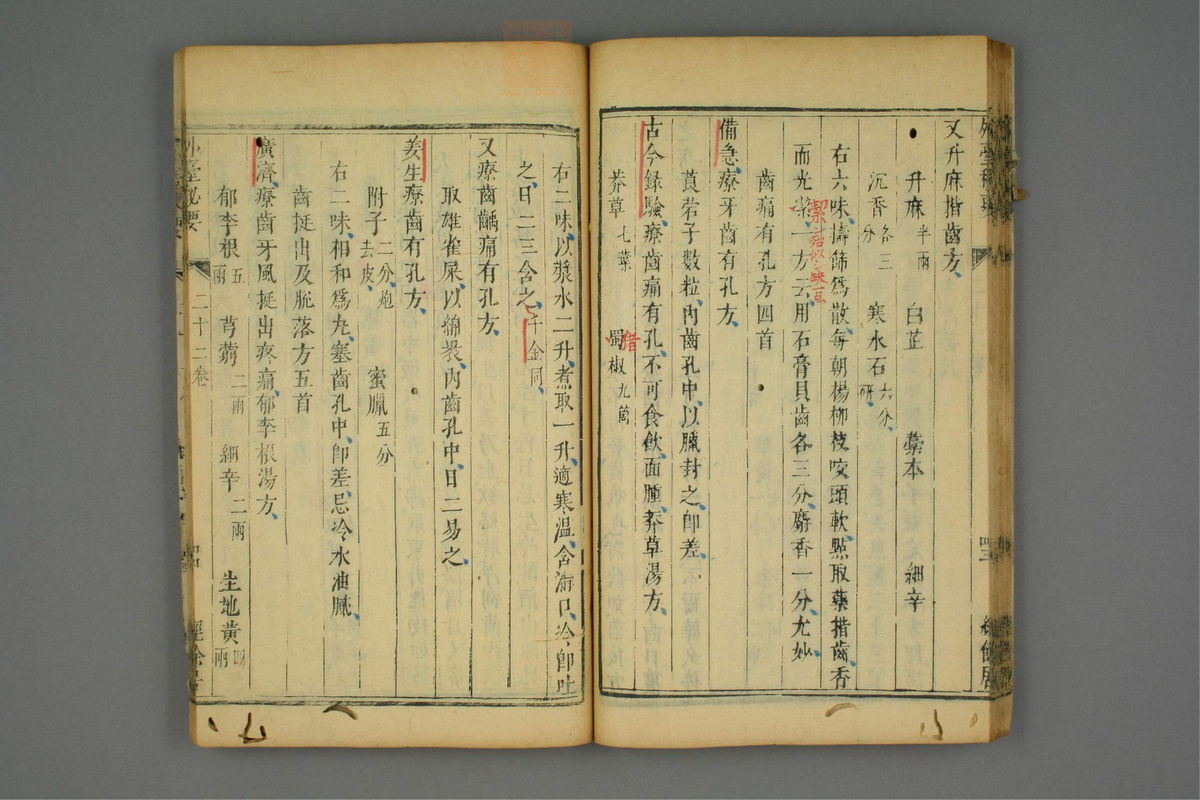 又升麻揩齒方
升麻半兩 白芷 藁本 細辛
沉香各三分 寒水石六分研
右六味擣篩爲散每朝楊柳枝咬頭軟㸃取藥揩齒香
而光潔一方云用石膏貝齒各三分麝香一分尤妙
齒痛有孔方四首
備急療牙齒有孔方
莨菪子數粒內齒孔中以臈封之卽差
古今録驗療齒痛有孔不可食飲面腫莽草湯方
莽草七葉 蜀椒九箇
右二味以漿水二升煮取一升適寒溫含滿口冷卽吐
之日二三含之千金同
又療齒齲痛有孔方
取雄雀屎以綿裹內齒孔中日二易之
姜生療齒有孔方
附子二分炮去皮 蜜臘五分
右二味相和爲丸塞齒孔中卽差忌冷水油膩
齒挺出及脫落方五首
廣濟療齒牙風挺出疼痛郁李根湯方
郁李根五兩 芎藭二兩 細辛二兩 生地黃四兩
外臺秘要
二十二卷